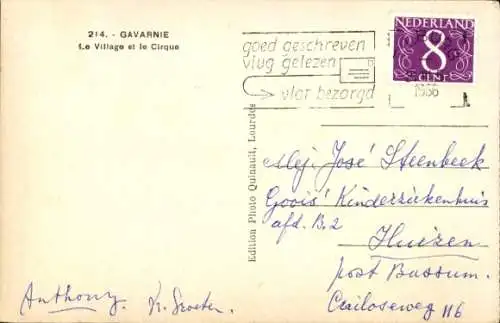 214. - GAVARNIE
Le Village et le Cirque
goed geschreven
vlug gelezen
vlot bezorgd
NEDERLAND
8
CENT
1966
Edition Photo Quinault, Lourdes
Mej. José Steenbeek
Goois' Kinderziekenhuis
afd. B.2
Huizen
post Bussum.
Crailoseweg 116
Anthony. K. Groeten.